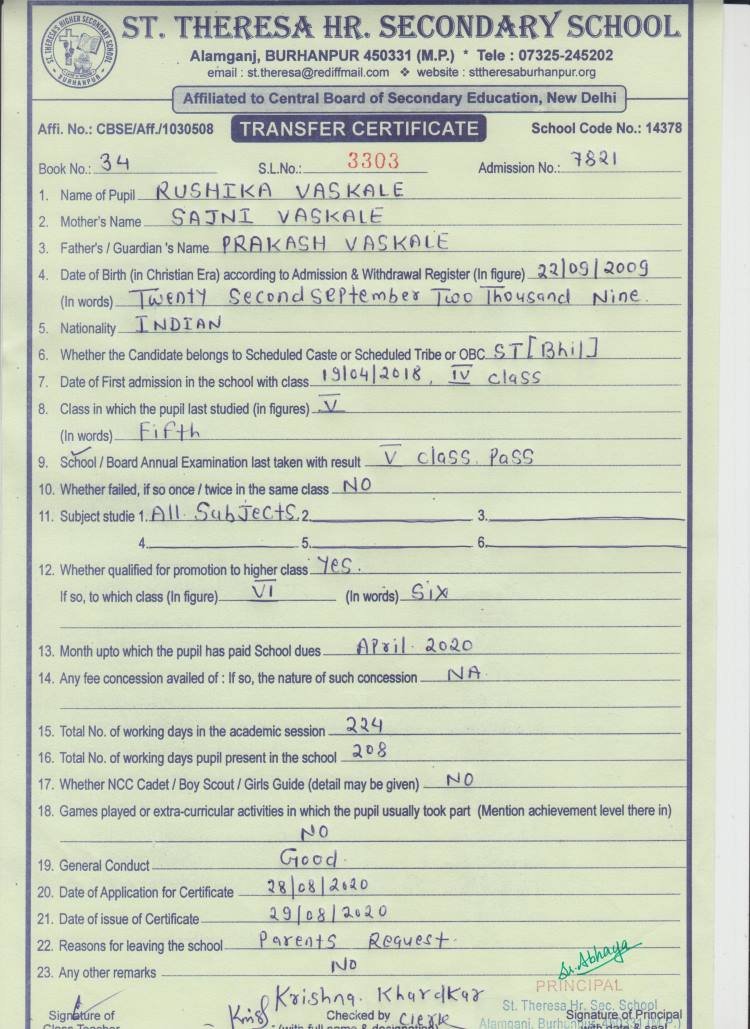 ST. THERESA HR. SECONDARY SCHOOL
Alamganj, BURHANPUR 450331 (M.P.) * Tele : 07325-245202
email : st.theresa@rediffmail.com ❖ website : sttheresaburhanpur.org
Affiliated to Central Board of Secondary Education, New Delhi
Affi. No.: CBSE/Aff./1030508 TRANSFER CERTIFICATE School Code No.: 14378
Book No.: 34 S.L.No.: 3303 Admission No.: 7821
1. Name of Pupil RUSHIKA VASKALE
2. Mother's Name SAJNI VASKALE
3. Father's / Guardian 's Name PRAKASH VASKALE
4. Date of Birth (in Christian Era) according to Admission & Withdrawal Register (In figure) 22/09/2009
(In words) Twenty Second September Two Thousand Nine.
5. Nationality INDIAN
6. Whether the Candidate belongs to Scheduled Caste or Scheduled Tribe or OBC ST [Bhil]
7. Date of First admission in the school with class 19/04/2018, IV class
8. Class in which the pupil last studied (in figures) V
(In words) Fifth
9. School / Board Annual Examination last taken with result V class Pass
10. Whether failed, if so once / twice in the same class NO
11. Subject studie 1. All Subjects. 2. 3.
4. 5. 6.
12. Whether qualified for promotion to higher class Yes.
If so, to which class (In figure) VI (In words) Six
13. Month upto which the pupil has paid School dues April. 2020
14. Any fee concession availed of : If so, the nature of such concession NA.
15. Total No. of working days in the academic session 224
16. Total No. of working days pupil present in the school 208
17. Whether NCC Cadet / Boy Scout / Girls Guide (detail may be given) NO
18. Games played or extra-curricular activities in which the pupil usually took part (Mention achievement level there in)
NO
19. General Conduct Good.
20. Date of Application for Certificate 28/08/2020
21. Date of issue of Certificate 29/08/2020
22. Reasons for leaving the school Parents Request.
23. Any other remarks NO
Sr. Abhaya
PRINCIPAL
Krishna. Khardkar
St. Theresa Hr. Sec. School
Signature of Checked by Clerk Signature of Principal
Class Teacher (with full name & designation) Alamganj, Burhanpur 450331 (M.P.) with date & seal